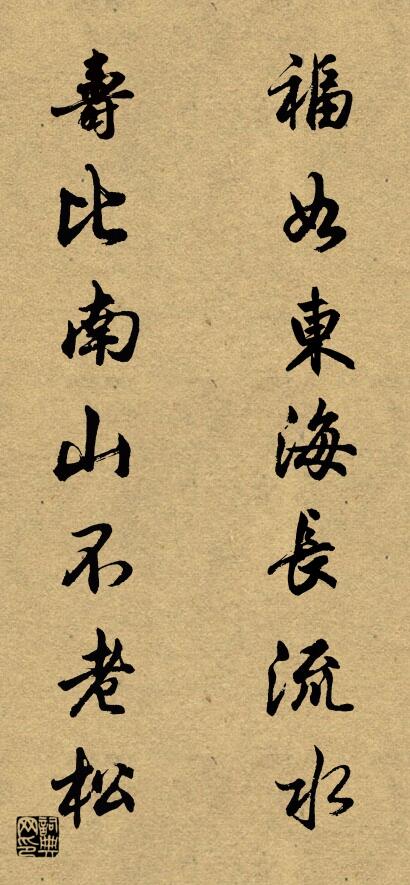 福如東海長流水
壽比南山不老松
詞典网印